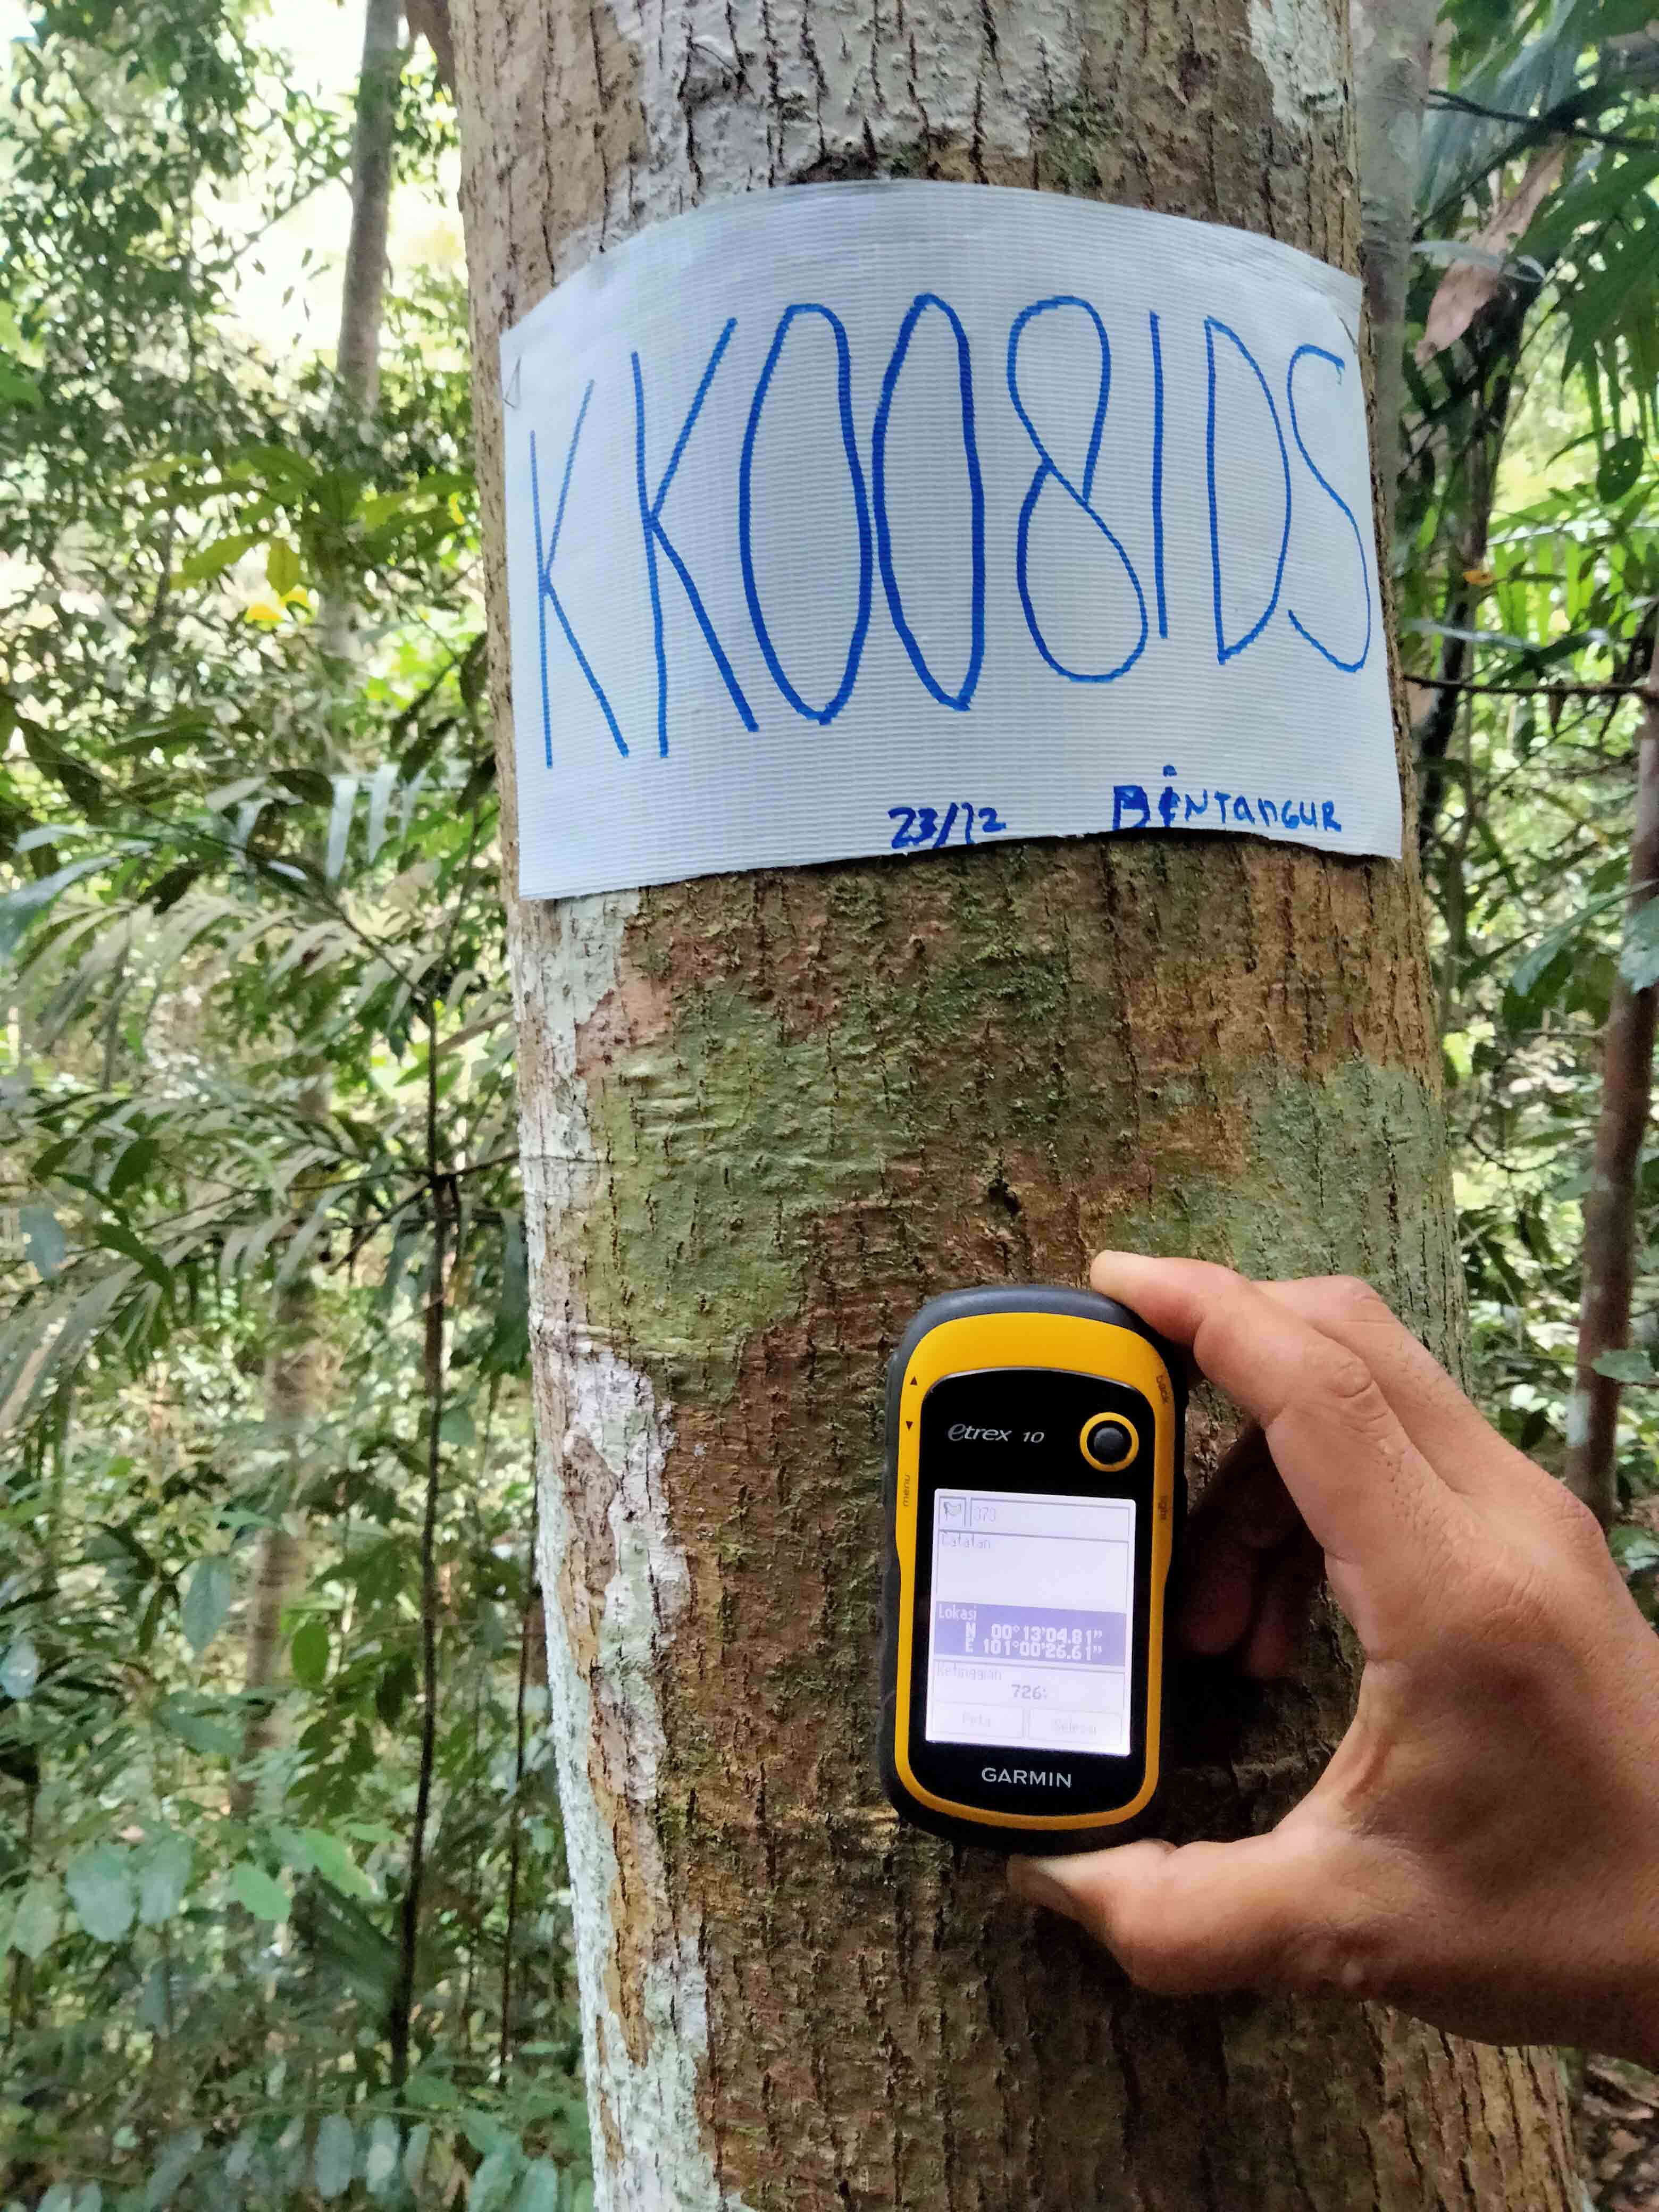 KK0081DS
23/12 BINTANGUR
back
etrex 10
menu
light
373
Catatan
Lokasi
N 00°13'04.81"
E 101°00'26.61"
Ketinggian
726
Peta Selesai
GARMIN